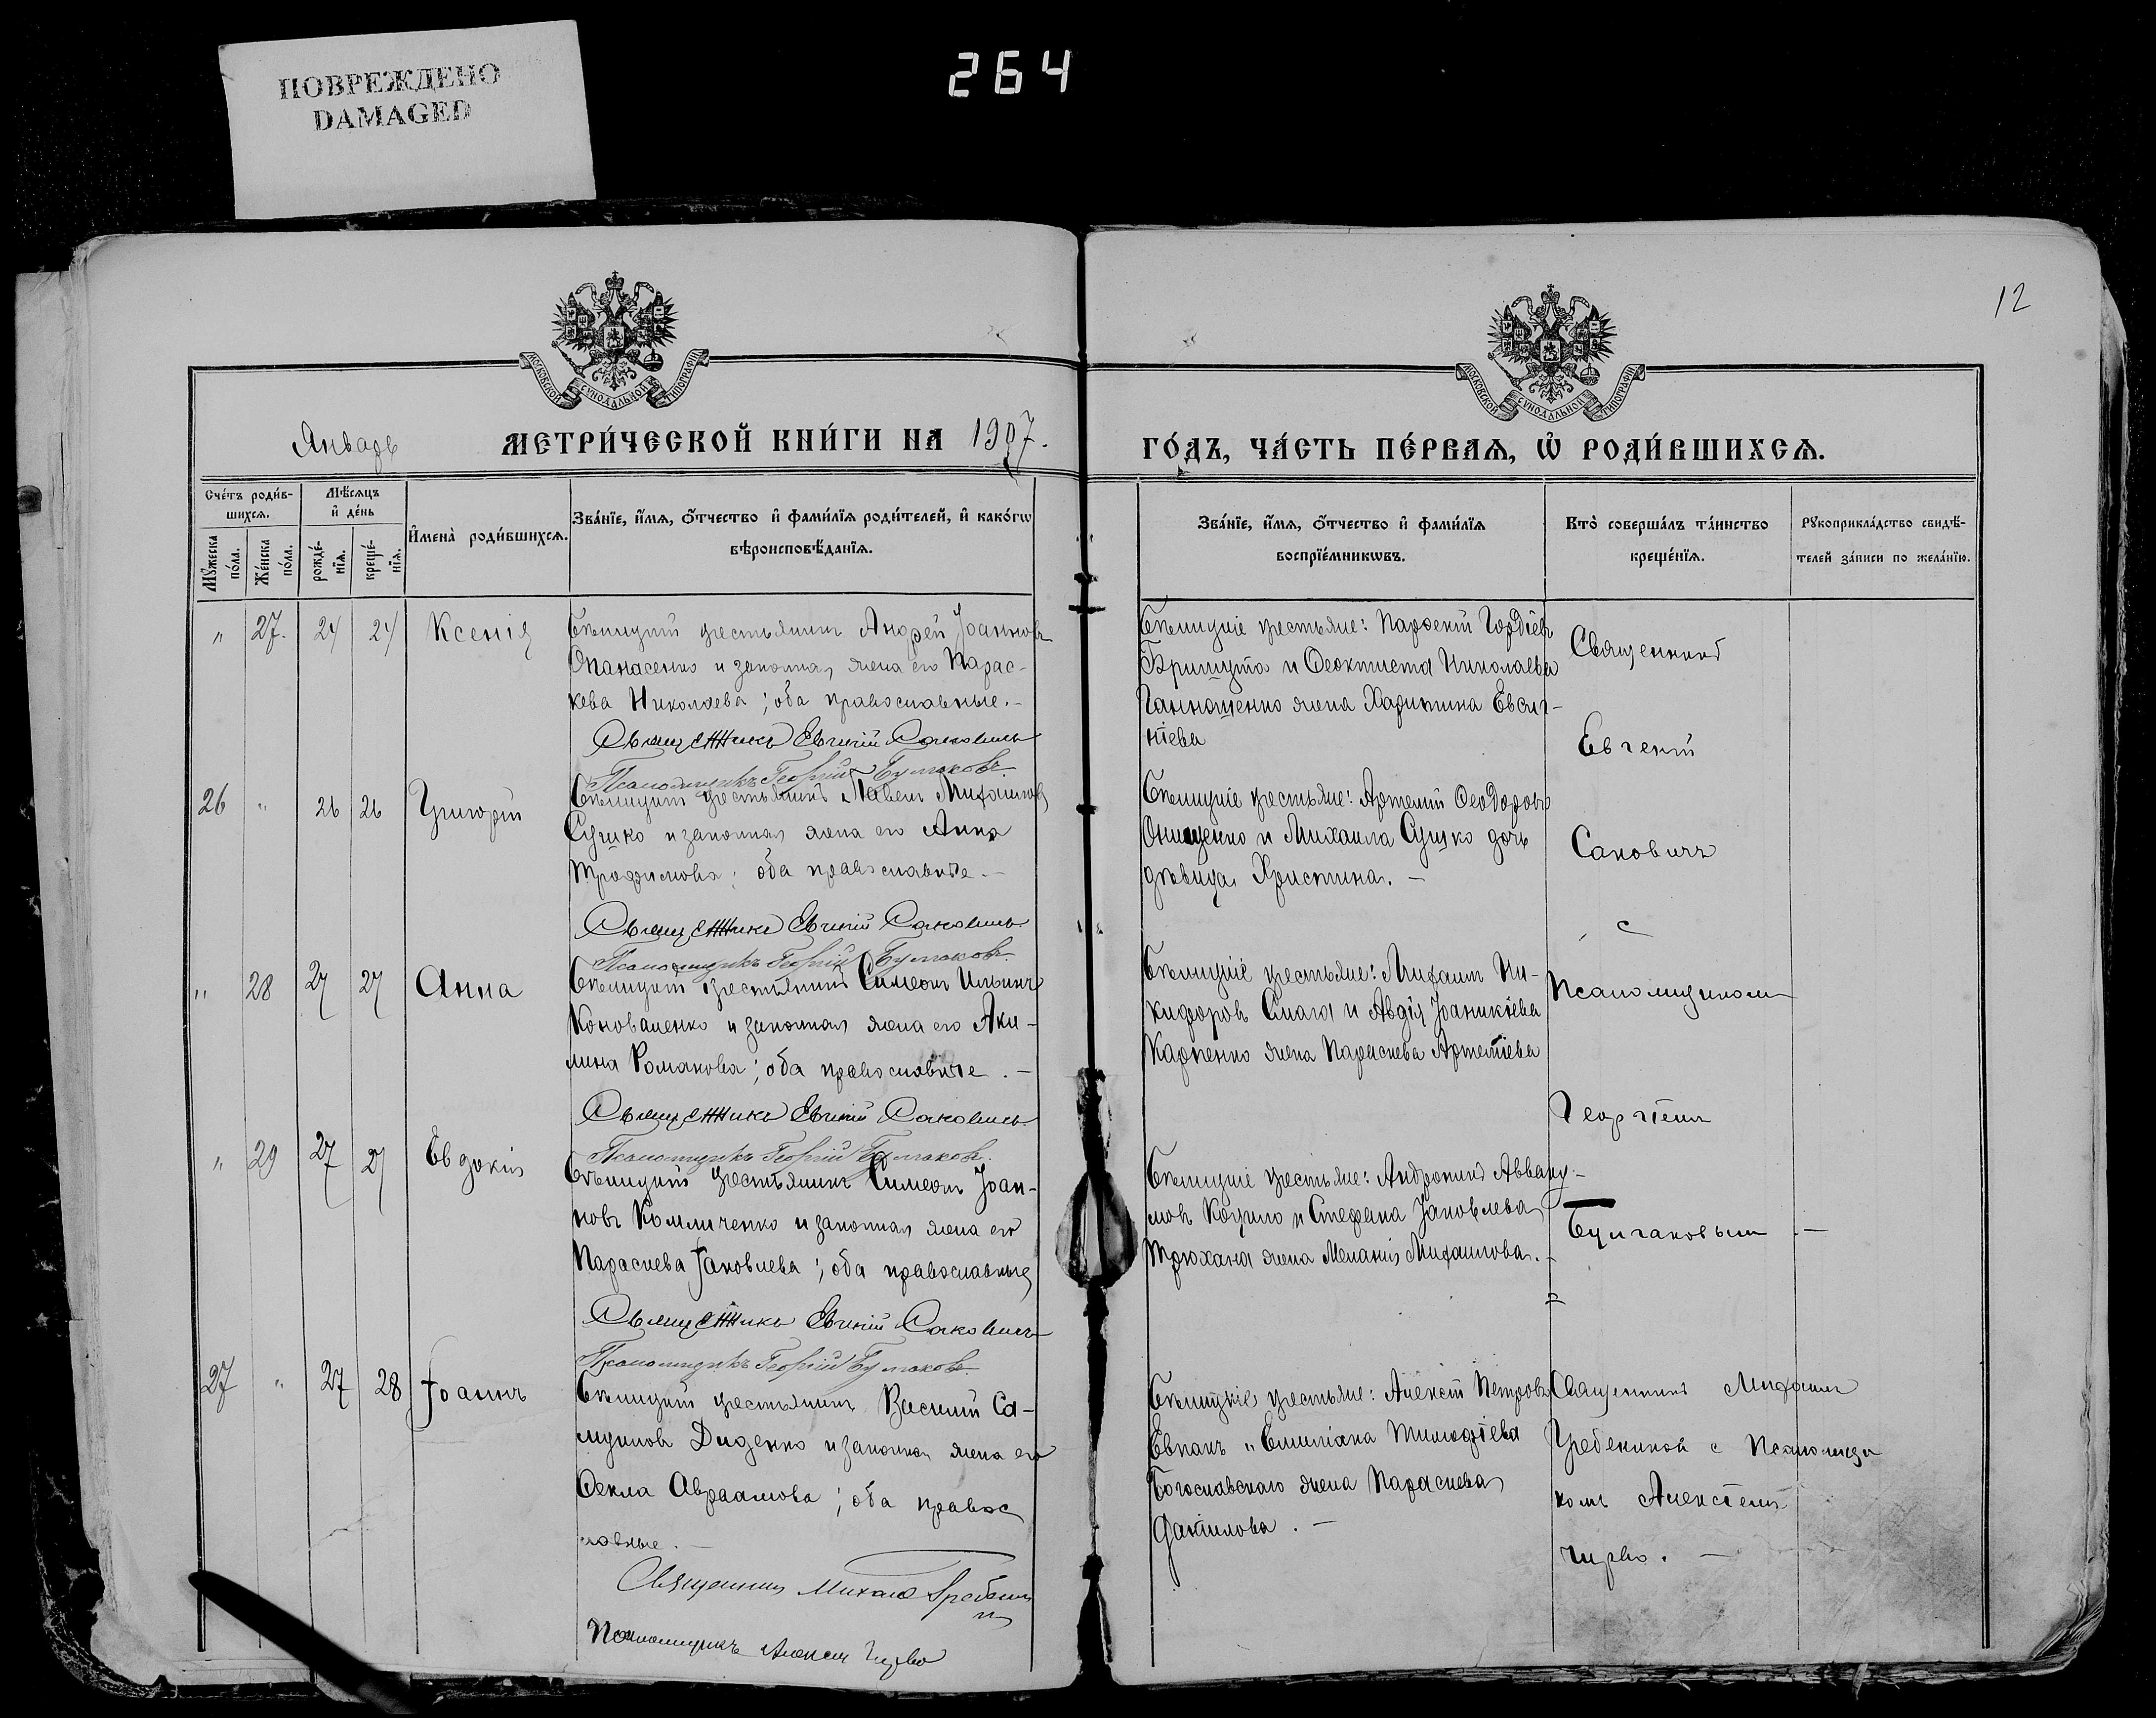 ПОВРЕЖДЕНО
DAMAGED
264
12
МОСКОВСКОЙ СѴНОДАЛЬНОЙ ТИПОГРАФІИ
МОСКОВСКОЙ СѴНОДАЛЬНОЙ ТИПОГРАФІИ
Январь МЕТРИ́ЧЕСКОЙ КНИ́ГИ НА 1907.
ГО́ДЪ, ЧА́СТЬ ПЕ́РВАѦ, Ѡ҆ РОДИ́ВШИХСѦ.
Сче́тъ роди́в-
шихсѧ.
Мꙋ́жеска
по́ла.
Же́нска
по́ла.
Мѣ́сѧцъ
и҆ де́нь
рожде́-
нїѧ.
креще́-
нїѧ.
И҆мена̀ роди́вшихсѧ.
Зва́нїе, и҆́мѧ, ѻ҆́тчество и҆ фами́лїѧ роди́телей, и҆ како́гѡ
вѣроисповѣ́данїѧ.
Зва́нїе, и҆́мѧ, ѻ҆́тчество и҆ фами́лїѧ
воспрїе́мникѡвъ.
Кто̀ соверша́лъ та́инство
креще́нїѧ.
Рꙋкоприкла́дство свидѣ́-
телей за́писи по жела́нїю.
" 27. 24 24 Ксенія
Бѣлицкій крестьянинъ Андрей Іоанновъ
Опанасенко и законная жена его Парас-
кева Николаева; оба православные.-
Священникъ Евгеній Саковичъ
Псаломщикъ Георгій Булгаковъ.
Бѣлицкіе крестьяне: Парѳеній Гордіевъ
и Ѳеоктиста Николаева
жена Харитина
Священникъ
Евгеній
Саковичъ
с
Псаломщикомъ
Георгіемъ
Булгаковымъ .—
26 " 26 26 Григорій
Бѣлицкій крестьянинъ Павелъ Михаиловъ
Сушко и законная жена его Анна
Трофимова; оба православные.-
Священникъ Евгеній Саковичъ
Псаломщикъ Георгій Булгаковъ.
Бѣлицкіе крестьяне: Артемій Ѳеодоровъ
Онищенко и Михаила Сушко дочь
дѣвица Христина. —
" 28 27 27 Анна
Бѣлицкій крестьянинъ Симеонъ Ильинъ
Коноваленко и законная жена его Аки-
лина Романова; оба православные.-
Священникъ Евгеній Саковичъ
Псаломщикъ Георгій Булгаковъ.
Бѣлицкіе крестьяне: Михаилъ Ни-
кифоровъ Смага и Авдія Іоаникіева
Карпенко жена Параскева Артеміева
" 29 27 27 Евдокія
Бѣлицкій крестьянинъ Симеонъ Іоан-
новъ и законная жена его
Параскева Іаковлева; оба православные
Священникъ Евгеній Саковичъ
Псаломщикъ Георгій Булгаковъ.
Бѣлицкіе крестьяне: Андроникъ Авваку-
мовъ и Стефана Іаковлева
Трюхана жена Меланія Михаилова.-
27 " 27 28 Іоаннъ
Бѣлицкій крестьянинъ Василій Са-
муиловъ Диденко и законная жена его
Ѳекла Авраамова; оба правос
лавные.—
Священникъ Михаилъ
Псаломщикъ Алексѣй
Бѣлицкіе крестьяне: Алексій Петровъ
Евпакъ и Емиліана Тимоѳіева
Богославскаго жена Параскева
Даніилова. —
Священникъ Михаилъ
Гребениковъ с Псаломщи
комъ Алексіемъ